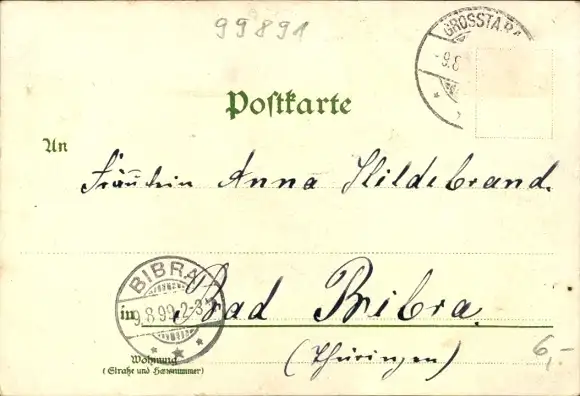 99891
GROSSTABA
-9.8
Postkarte
An
Fräulein Anna Hildebrand.
BIBRA
in Bad Bibra.
9.8.99.2-3
(Thüringen)
6,-
Wohnung
(Straße und Hausnummer)